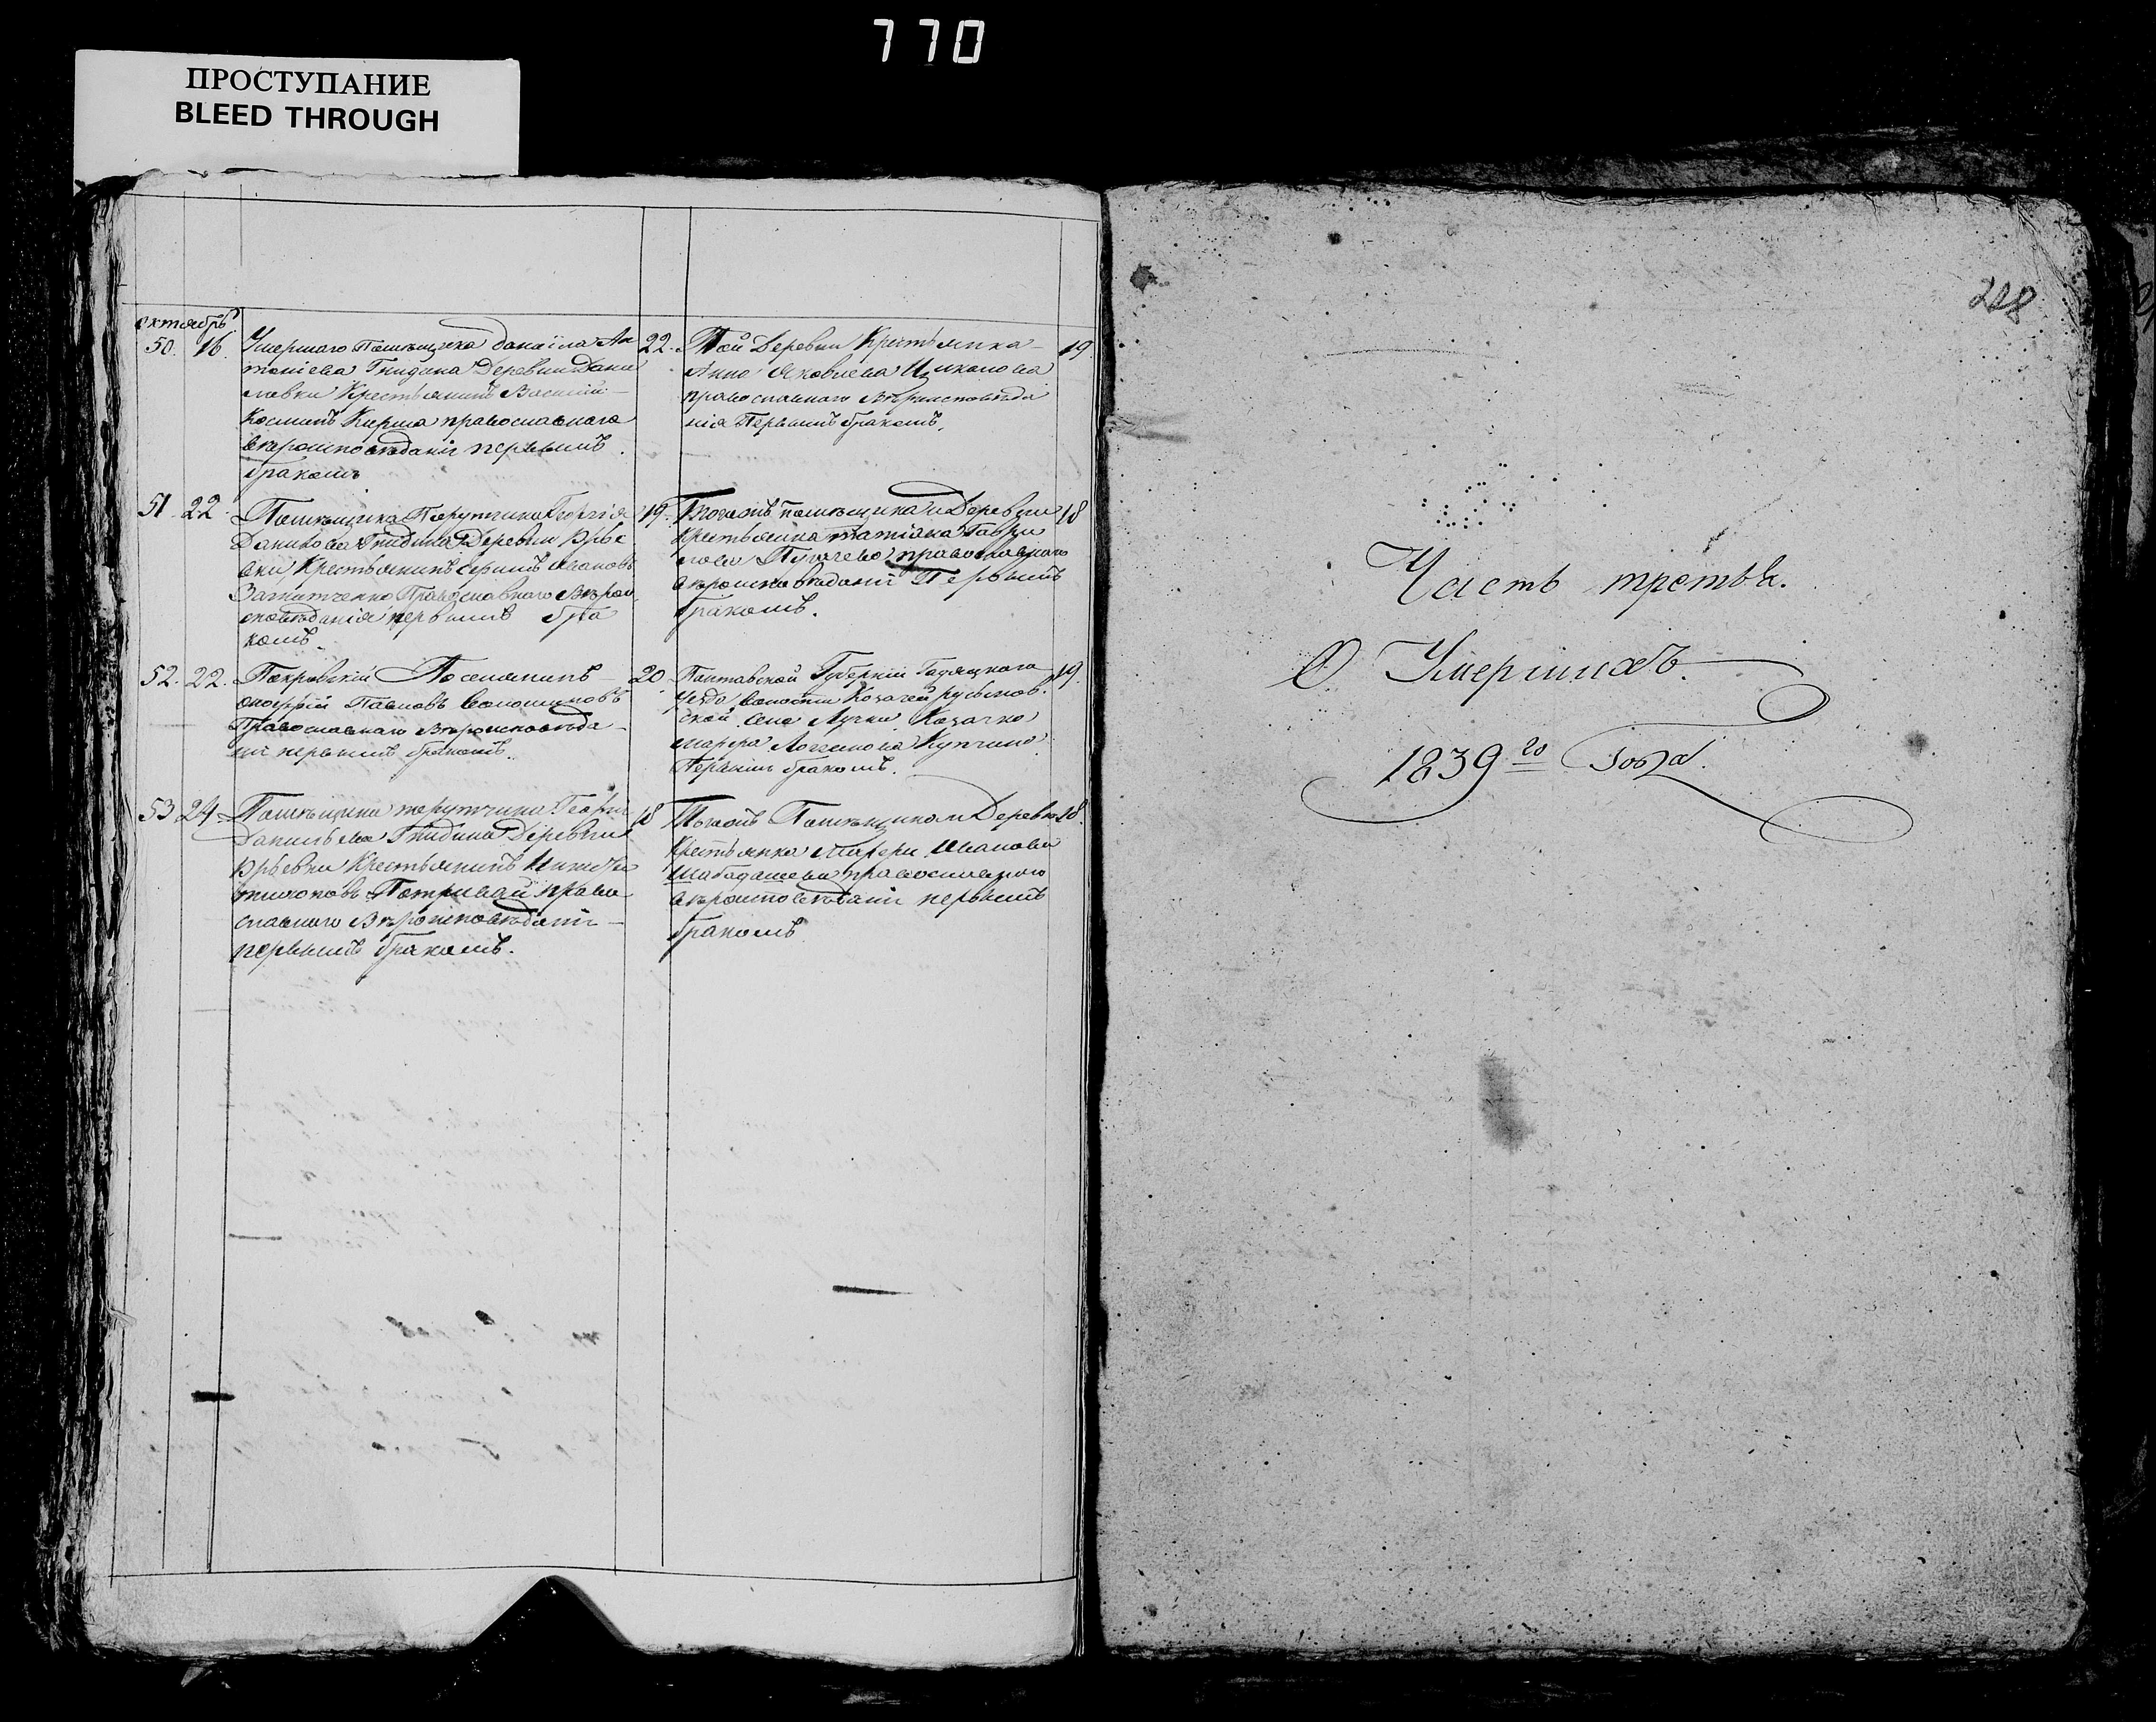 770
ПРОСТУПАНИЕ
BLEED THROUGH
октябрь
50. 16. Умершаго Помѣщика Даніила Ан 22.
тоніева Гнидина Деревни Дани
ловки Крестьянинъ Василій
Косминъ Кирша православнаго
вѣроисповѣданія первымъ
бракомъ
Той Деревни Крестьянка 19
Анна Яковлева Цыканова
православнаго Вѣроисповѣда
нія Первымъ бракомъ.
51. 22. Помѣщика Порутчика Георгія 19.
Данилова Гнидина Деревни Юрье
вки Крестьянинъ Ивановъ
Православнаго Вѣрои
сповѣданія первымъ бра
комъ
Тогожъ помѣщика и Деревни 18
крестьянка Татіана Гаври
лова православнаго
вѣроисповѣданія Первымъ
бракомъ.
52. 22. Покровскій Поселянинъ 20
Павловъ
Православнаго Вѣроисповѣда
нія первымъ бракомъ.
Полтавской Губерніи Гадяцкого 19.
уезда волости
ской Села Лучки Козачка
Марфа Логгинова
Первымъ бракомъ.
53 24. Помѣщика порутчика Георгія 18
Данильева Гнидина Деревни
Юрьевки Крестьянинъ
православнаго Вѣроисповѣданія
первымъ бракомъ.
Тогожъ Помѣщика и Деревни 18.
Крестьянка Иванова
православнаго
вѣроисповѣданія первымъ
бракомъ
Часть третья.
О Умершихъ
1839го Года.